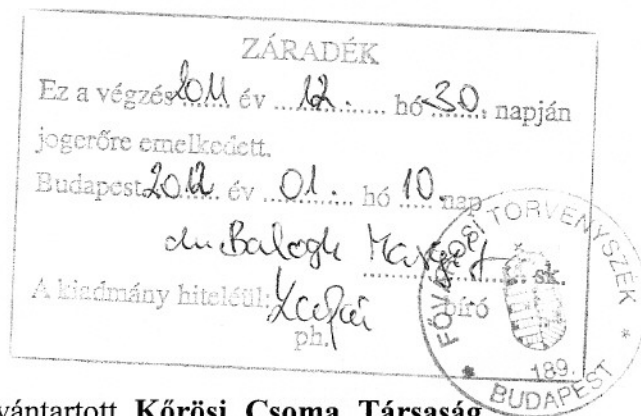 ZÁRADÉK
Ez a végzés 2011 év ....12...... hó 30. napján
jogerőre emelkedett.
Budapest 2012 év ....01.... hó 10. nap
dr. Balogh Margit sk.
A kiadmány hiteléül: bíró
ph.
FŐVÁROSI TÖRVÉNYSZÉK * BUDAPEST *
189.
vántartott Kőrösi Csoma Társaság